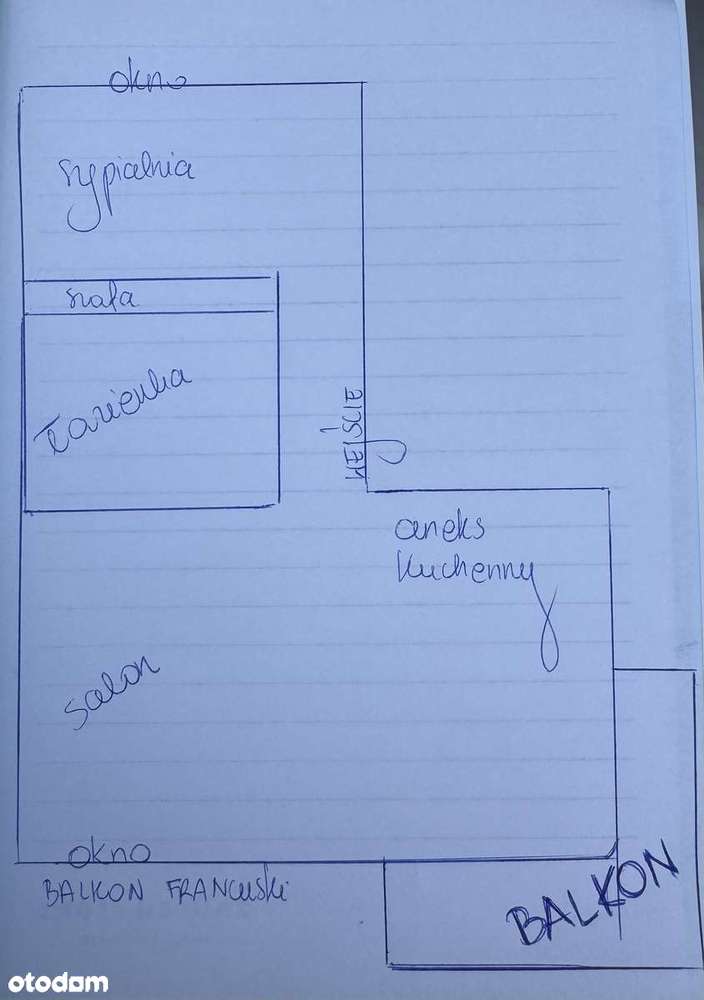 okno
sypialnia
szafa
Łazienka
WEJŚCIE
aneks
kuchenny
salon
okno
BALKON FRANCUSKI
BALKON
otodom